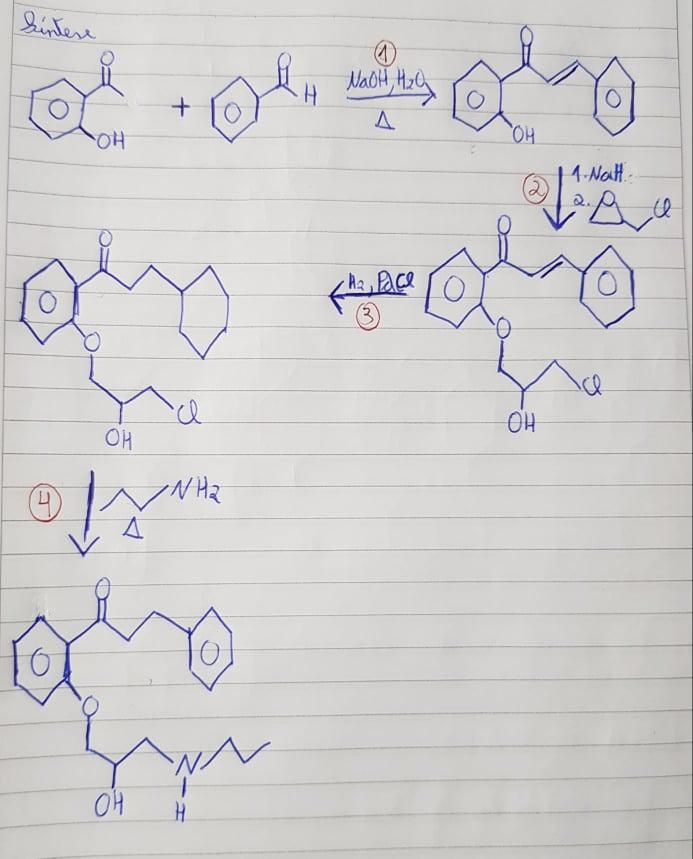 Síntese
O O ① O
+ H NaOH, H₂O
OH Δ OH
② 1. NaH
2. O Cl
O O
H₂, PdCl
③
O O
Cl Cl
OH OH
④ NH₂
Δ
O
O
N
OH H